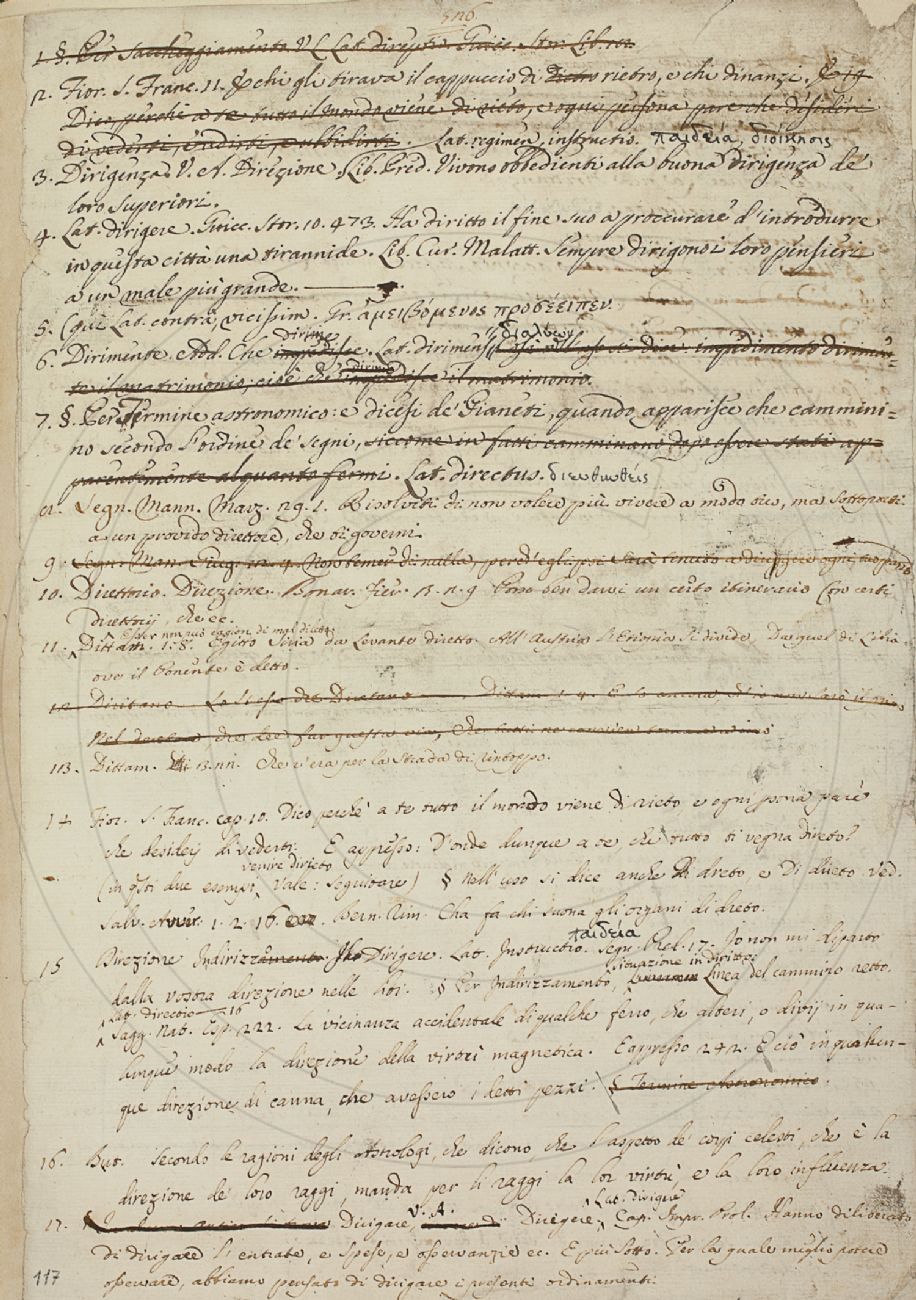 526
1. §. Per Saccheggiamento V L Lat. direptio. Guicc. Stor. Lib. 
2. Fior. S. Franc. 11. E chi gli tirava il cappuccio di Dietro rietro, e chi dinanzi. E 10
Dico, perchè a te tutto il mondo viene di rieto, e ogni persona pare che desideri
di vederti, e udirti, e ubbidirti. Lat. regimen, instructio. παιδεία, διοίκησις
3. Dirigenza V. A. Direzione. Lib. Pred. Vivono obbedienti alla buona dirigenza de'
loro superiori.
4. Lat. dirigere. Guicc. Stor. 10. 473. Ha diritto il fine suo a proccurare d'introdurre
in questa città una tirannide. Lib. Cur. Malatt. Sempre dirigono i loro pensieri
a un male più grande.
5. (qui Lat. contra, vicissim. Gr. ἀμειβόμενος προσέειπεν.
dirime
6. Dirimente. Add. Che impedisce. Lat. dirimens. Così si dice impedimento dirimen=
te il matrimonio, cioè che impedisce il matrimonio.
7. §. Per Termine astronomico: e dicesi de' Pianeti, quando apparisce che cammini=
no secondo l'ordine de' segni, siccome in fatti camminano dopo essere stati ap=
parentemente alquanto fermi. Lat. directus. διευθυθείς
Segn. Mann. Marz. 29. 1. Risolviti di non voler più vivere a modo tuo, ma sottoponti
a un provido direttore, che ti governi.
9. Segn. Man. Giug. 12. 4. Non temer di nulla, perch'egli poi sarà tenuto a dirigere ogni tuo passo
10. Direttorio. Direzione. Bonar. Fier. Posso ben darvi un certo itinerario Con certi
direttorij, che ec.
Esser non può cagion di mal diletto
11. Dittam. 1. 8. Egitto Siria da Levante diretto. All'Austro l'Etiopia si divide, Da quel di Libia
ove il Ponente è detto.
12. Diretano. Lo stesso che Diretano. Dittam. 1. 4.
113. Dittam. Che v'era per la strada di rintoppo.
14 Fior. S. Franc. cap. 10. Dico perchè a te tutto il mondo viene di rieto e ogni persona pare
che desideri di vederti: E appresso: D'onde dunque a te che tutto ti vegna direto?
venire dirieto
(in questi due esempi, Vale: Seguitare) § Nell'uso si dice anche Di dreto, e Di dueto Ved.
Salv. Avver. 1. 2. 16. Bern. Rim. Cha fa chi suona gli organi di dreto.
παιδεία
15 Direzione Indirizzamento. Il Dirigere. Lat. Instructio. Segn. Pred. 17. Io non mi diparto
Situazione in diritto
dalla vostra direzione nelle lodi. § Per Indirizzamento, Linea del cammino retto.
Lat. directio
Sagg. Nat. Esp. 222. La vicinanza accidentale di qualche ferro, che alteri, o divij in qua-
lunque modo la direzione della virtù magnetica. E appresso 242. E ciò in qualun-
que direzione di canna, che avessero i detti pezzi. § Termine Astronomico.
16. But. Secondo le ragioni degli Astrologi, che dicono, che l'aspetto de' corpi celesti, che è la
direzione de' loro raggi, manda per li raggi la lor virtù, e la loro influenza.
V. A. Lat. Dirigere
17. Dirigare, Dirigere, Cap. Impr. Prol. Hanno diliberato
di dirigare l'entrate, e spese, e osservanzie ec. E più sotto. Per la quale meglio potere
osservare, abbiamo pensato di dirigare i presenti ordinamenti.
117